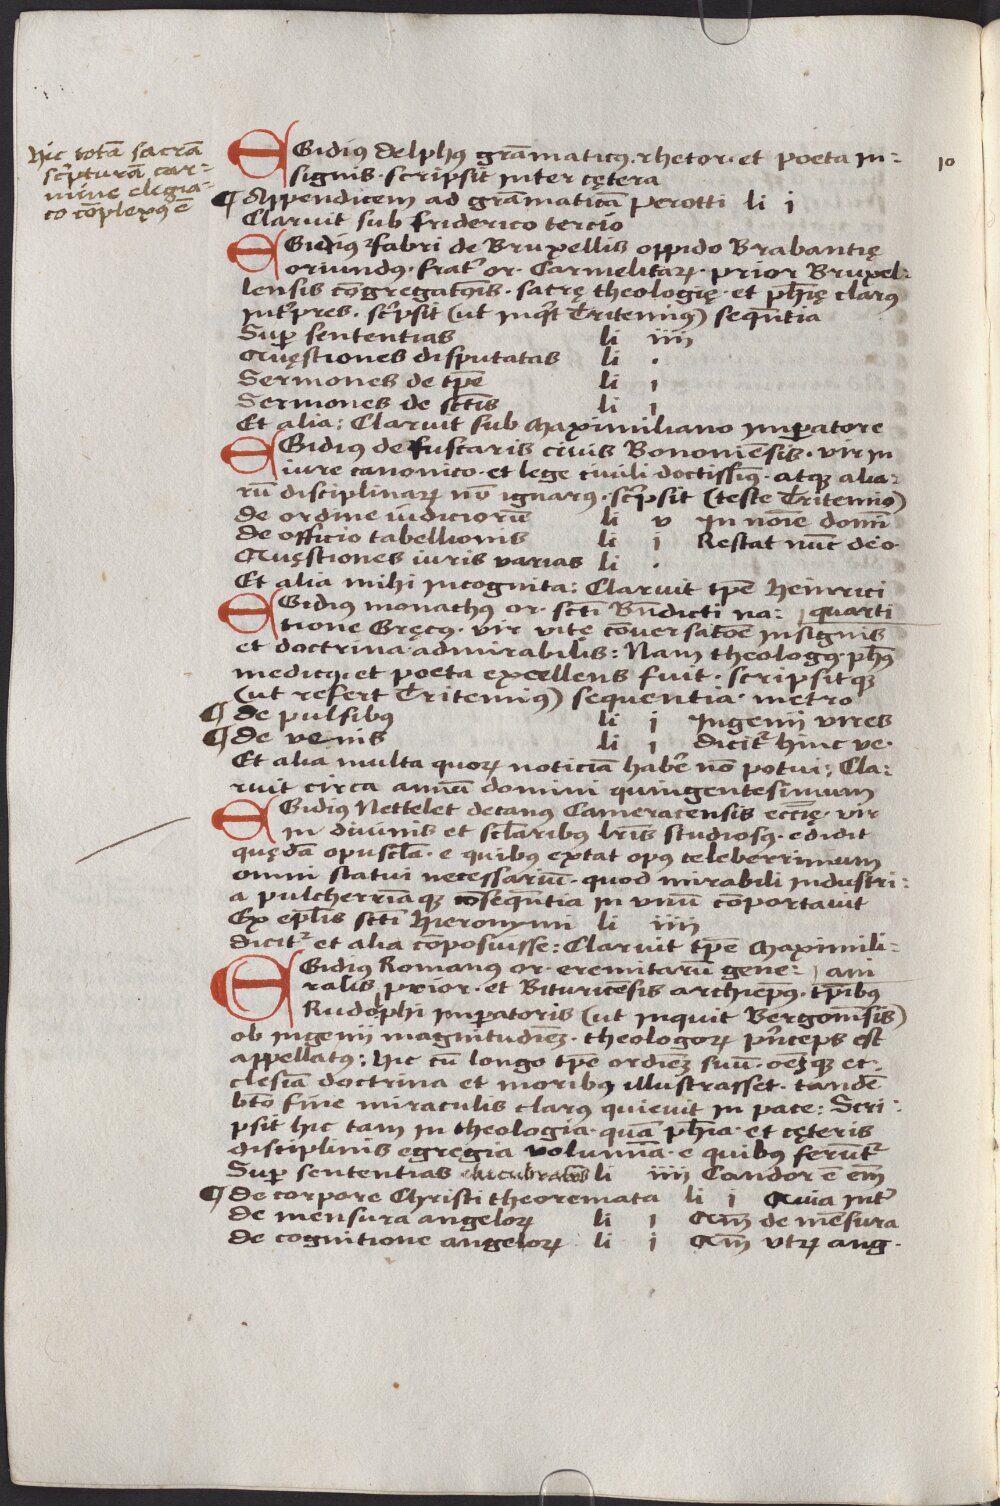 hic totā sacrā
scͥpturā car-
mine elegia-
co cōplexꝰ ē
10
EGidiꝰ delphꝰ grāmaticꝰ. rhetor. et poeta in-
signis. scripsit inter cętera
¶ Appendicem ad grāmaticā Perotti li i
Claruit sub friderico tercio
EGidiꝰ fabri de Bruxellis oppido Brabantię
oriundꝰ. frat᷒ or. Carmelitaꝝ. prior Bruxel-
lensis cōgregatōis. sacrę theologię. et phīę clarꝰ
int᷒pres. scͥpsit (ut inqͥt Tritemiꝰ) sequētia
Suꝑ sententias li iiii
Quęstiones disputatas li .
Sermones de tp̄e li i
Sermones de sctīs li i
Et alia: Claruit sub Maximiliano imꝑatore
EGidiꝰ de fuscaris civis Bononiēsis. vir in
iure canonico. et lege civili doctissīꝰ. atqꝫ alia-
rū disciplinaꝝ nō ignarꝰ. scͥpsit (teste Tritemiꝰ)
de ordine iudiciorū li v In noīe domī
de officio tabellionis li i Restat nūc de o.
Quęstiones iuris varias li .
Et alia mihi incognita: Claruit tp̄e Heinrici
quarti
EGidiꝰ monachꝰ or. sctī Bn̄dicti na:
tione Gręcꝰ. vir vite cōversatōe insignis
et doctrina admirabilis: Nam theologꝰ. phꝰ̄
medicꝰ. et poeta excellens fuit. scripsitqꝫ
(ut refert Tritemiꝰ) sequentia. metro
¶ de pulsibꝰ li i Ingenii vires
¶ de venis li i dicit᷒ hinc ve.
Et alia multa quoꝝ noticiā habē nō potui: Cla-
ruit circa annū domini quingentesimum
EGidiꝰ Nettelet decanꝰ Cameracensis eccīę. vir
in divinis et sclāribꝰ lr̄is studiosꝰ. edidit
quędā opusclā. e quibꝰ extat opꝰ celeberrimum
omni statui necessariū. quod mirabili industri-
a pulcherrīaqꝫ cōsequētia in unū cōportavit
Ex eplīs sctī Hieronymi li iiii
dicit᷒ et alia cōposuisse: Claruit tp̄e Maximili-
ani
EGidiꝰ Romanꝰ or. eremitarū gene:
ralis prior. et Bituricēsis archiepꝰ̄. tp̄ibꝰ
Rudolphi imꝑatoris (ut inquit Bergomēsis)
ob ingenii magnitudiēꝫ. theologoꝝ pͥnceps est
appellatꝰ: hic cū longo tp̄e ordiēꝫ suū. oēꝫqꝫ ec-
clesiā doctrina et moribꝰ illustrasset. tandē
btō fine miraculis clarꝰ quievit in pace: Scri-
psit hic tam in theologia. quā phīa. et cęteris
disciplinis egregia volumīa. e quibꝰ ferūt᷒
Suꝑ sententias elucubratōīs li iiii Candor ē em̄
¶ de corpore Christi theoremata li i Quia int᷒
de mensura angeloꝝ li i Qm̄ de mēsura
de cognitione angeloꝝ li i Qm̄ utꝝ ang.